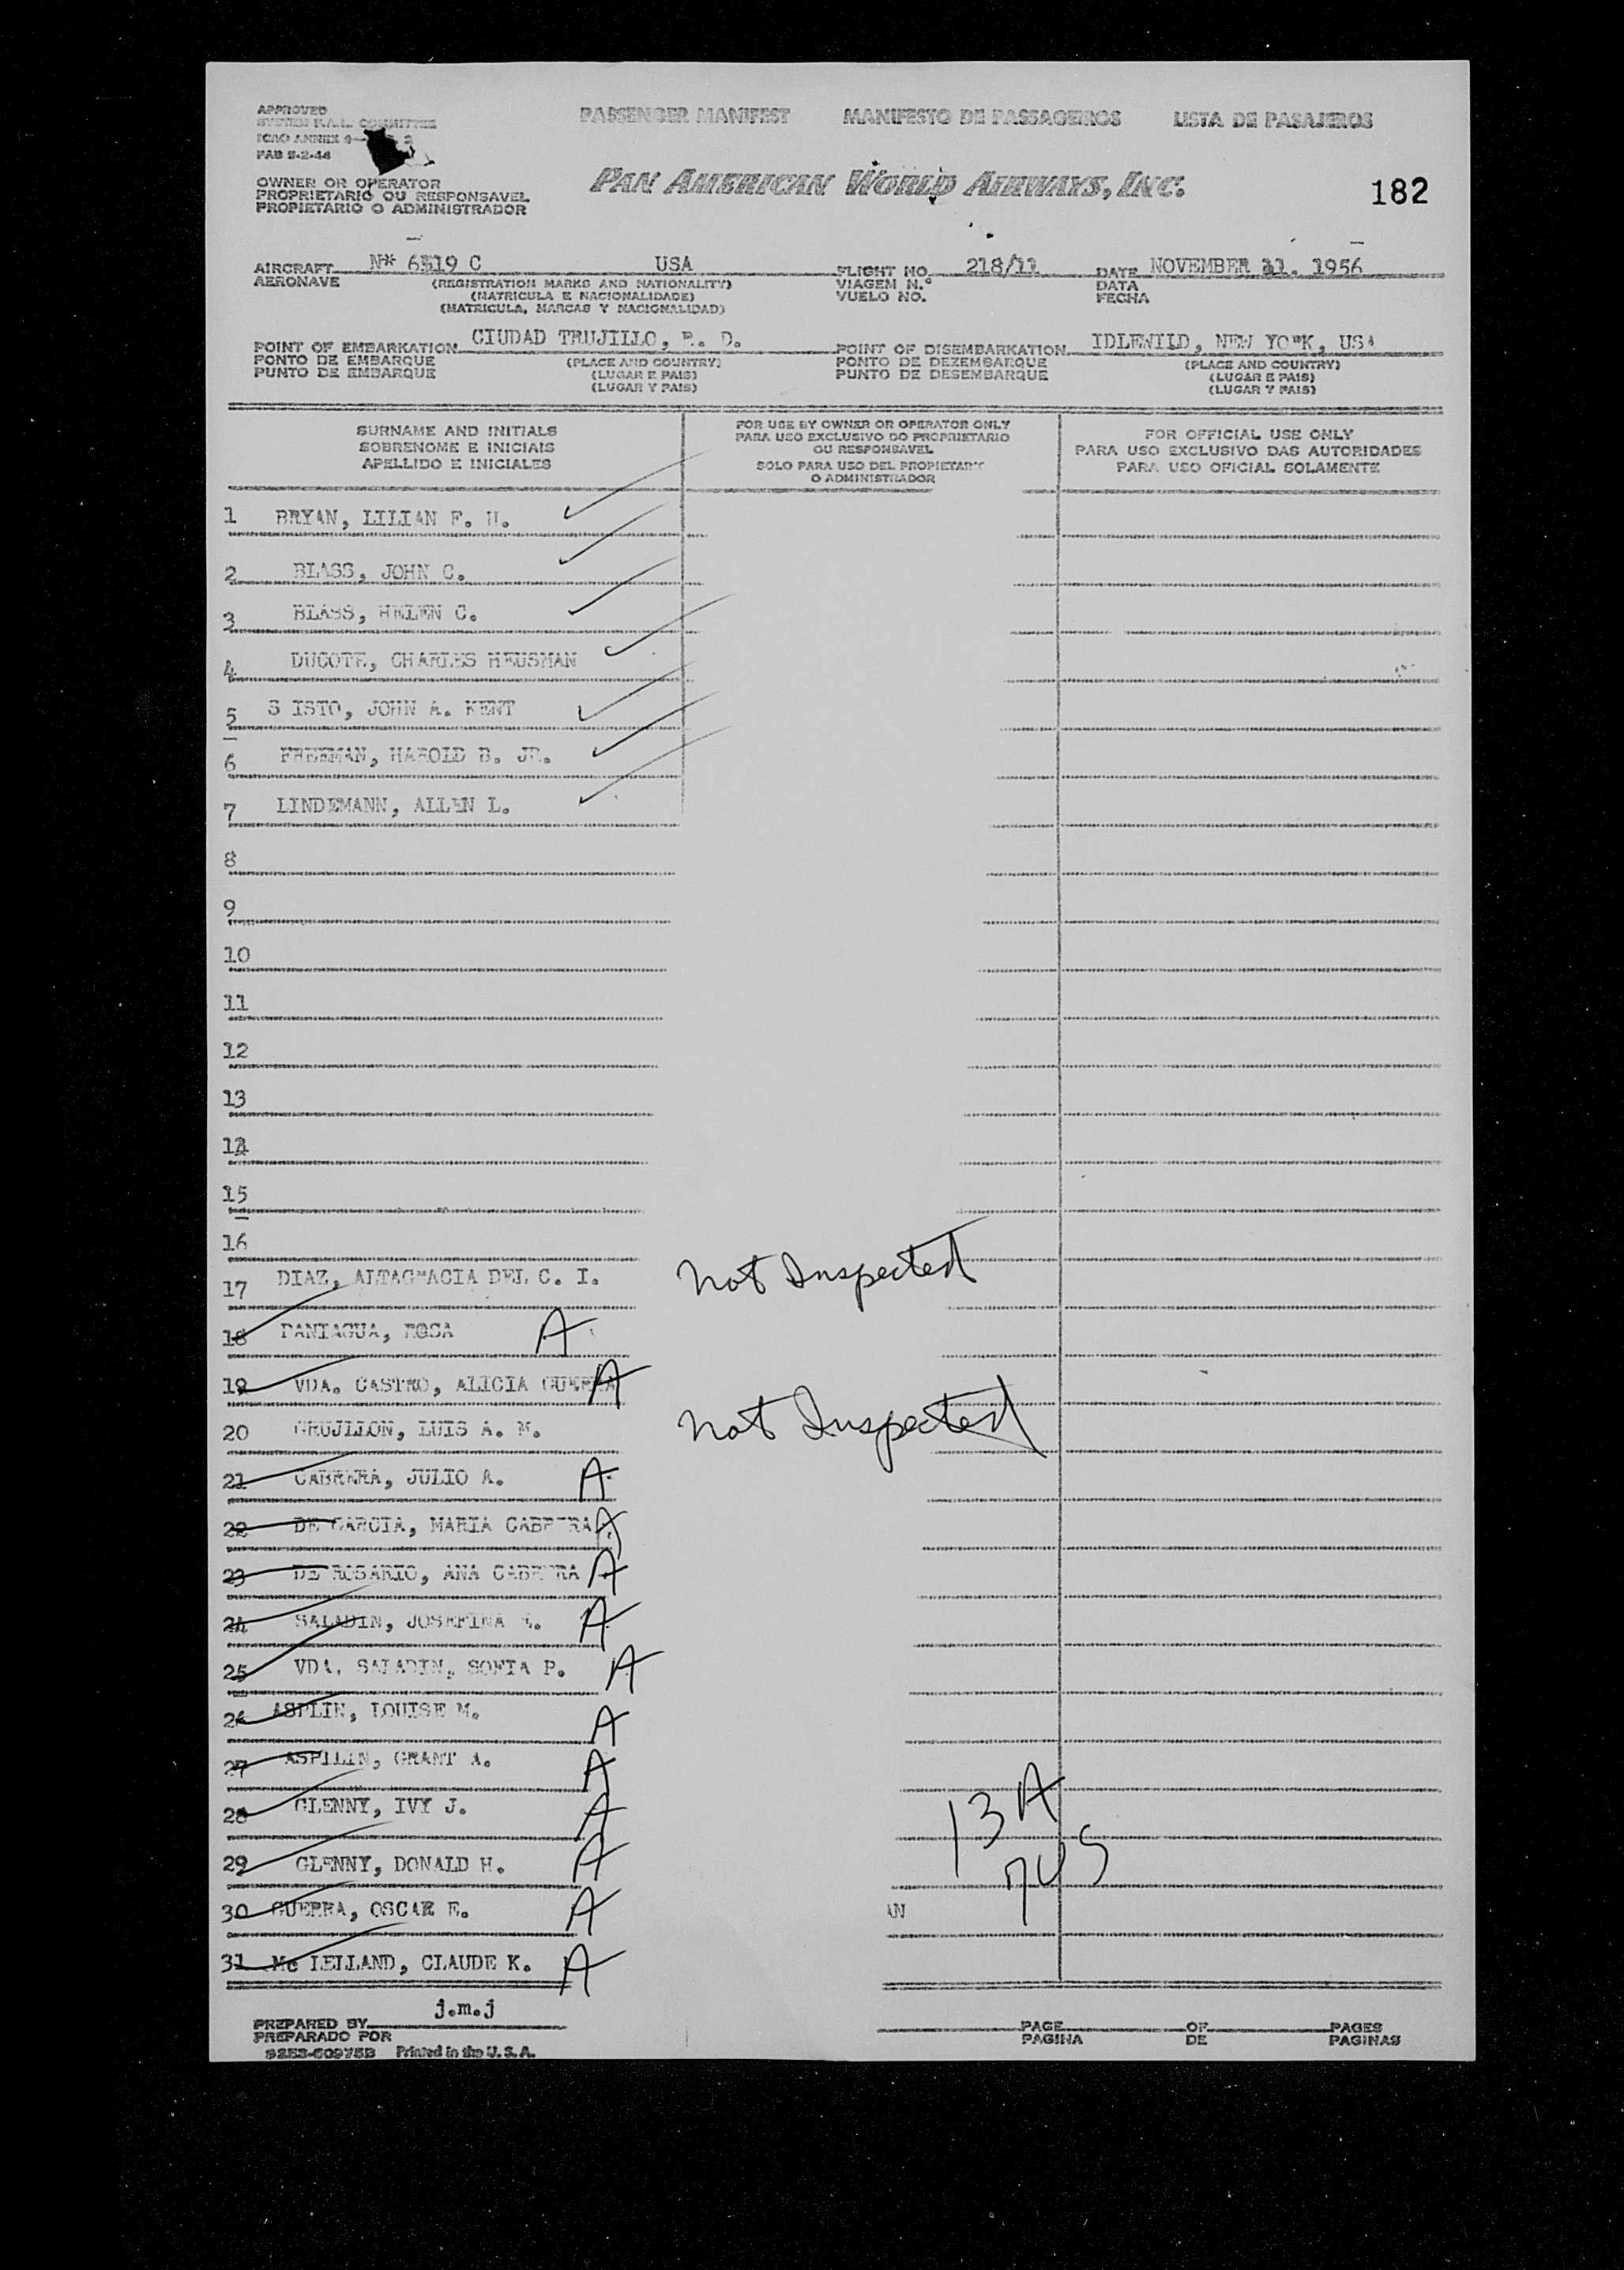 APPROVED
SYSTEM F.A.L. COMMITTEE
ICAO ANNEX 9
PAB 5-2-44
PASSENGER MANIFEST MANIFESTO DE PASSAGEIROS LISTA DE PASAJEROS
OWNER OR OPERATOR
PROPRIETARIO OU RESPONSAVEL
PROPIETARIO O ADMINISTRADOR
PAN AMERICAN WORLD AIRWAYS, INC.
182
AIRCRAFT N* 6519 C USA FLIGHT NO. 218/11 DATE NOVEMBER 11. 1956
AERONAVE (REGISTRATION MARKS AND NATIONALITY) VIAGEM N.º DATA
(MATRICULA E NACIONALIDADE) VUELO NO. FECHA
(MATRICULA, MARCAS Y NACIONALIDAD)
POINT OF EMBARKATION CIUDAD TRUJILLO, R. D. POINT OF DISEMBARKATION IDLEWILD, NEW YORK, USA
PONTO DE EMBARQUE (PLACE AND COUNTRY) PONTO DE DEZEMBARQUE (PLACE AND COUNTRY)
PUNTO DE EMBARQUE (LUGAR E PAIS) PUNTO DE DESEMBARQUE (LUGAR E PAIS)
(LUGAR Y PAIS) (LUGAR Y PAIS)
SURNAME AND INITIALS
SOBRENOME E INICIAIS
APELLIDO E INICIALES
FOR USE BY OWNER OR OPERATOR ONLY
PARA USO EXCLUSIVO DO PROPRIETARIO
OU RESPONSAVEL
SOLO PARA USO DEL PROPIETARIO
O ADMINISTRADOR
FOR OFFICIAL USE ONLY
PARA USO EXCLUSIVO DAS AUTORIDADES
PARA USO OFICIAL SOLAMENTE
1 BRYAN, LILIAN F. H.
2 BLASS, JOHN C.
3 BLASS, HELEN C.
4 DUCOTE, CHARLES HEUSMAN
5 S ISTO, JOHN A. KENT
6 FREEMAN, HAROLD B. JR.
7 LINDEMANN, ALLEN L.
8
9
10
11
12
13
14
15
16
17 DIAZ, ALTAGRACIA DEL C. I. Not Inspected
18 PANIAGUA, ROSA A
19 VDA. CASTRO, ALICIA GUERRA A
20 LUIS A. M. Not Inspected
21 CABRERA, JULIO A. A
22 DE GARCIA, MARIA CABRERA A
23 DE ROSARIO, ANA CABRERA A
24 SALADIN, JOSEFINA A
25 VDA. SALADIN, SOFIA P. A
26 ASPLIN, LOUISE M. A
27 ASPILIN, GRANT A. A
28 GLENNY, IVY J. A
29 GLENNY, DONALD H. A
30 GUERRA, OSCAR E. A
31 Mc LELLAND, CLAUDE K. A
13 A
7 US
AN
PREPARED BY j.m.j PAGE OF PAGES
PREPARADO POR PAGINA DE PAGINAS
Printed in the U.S.A.